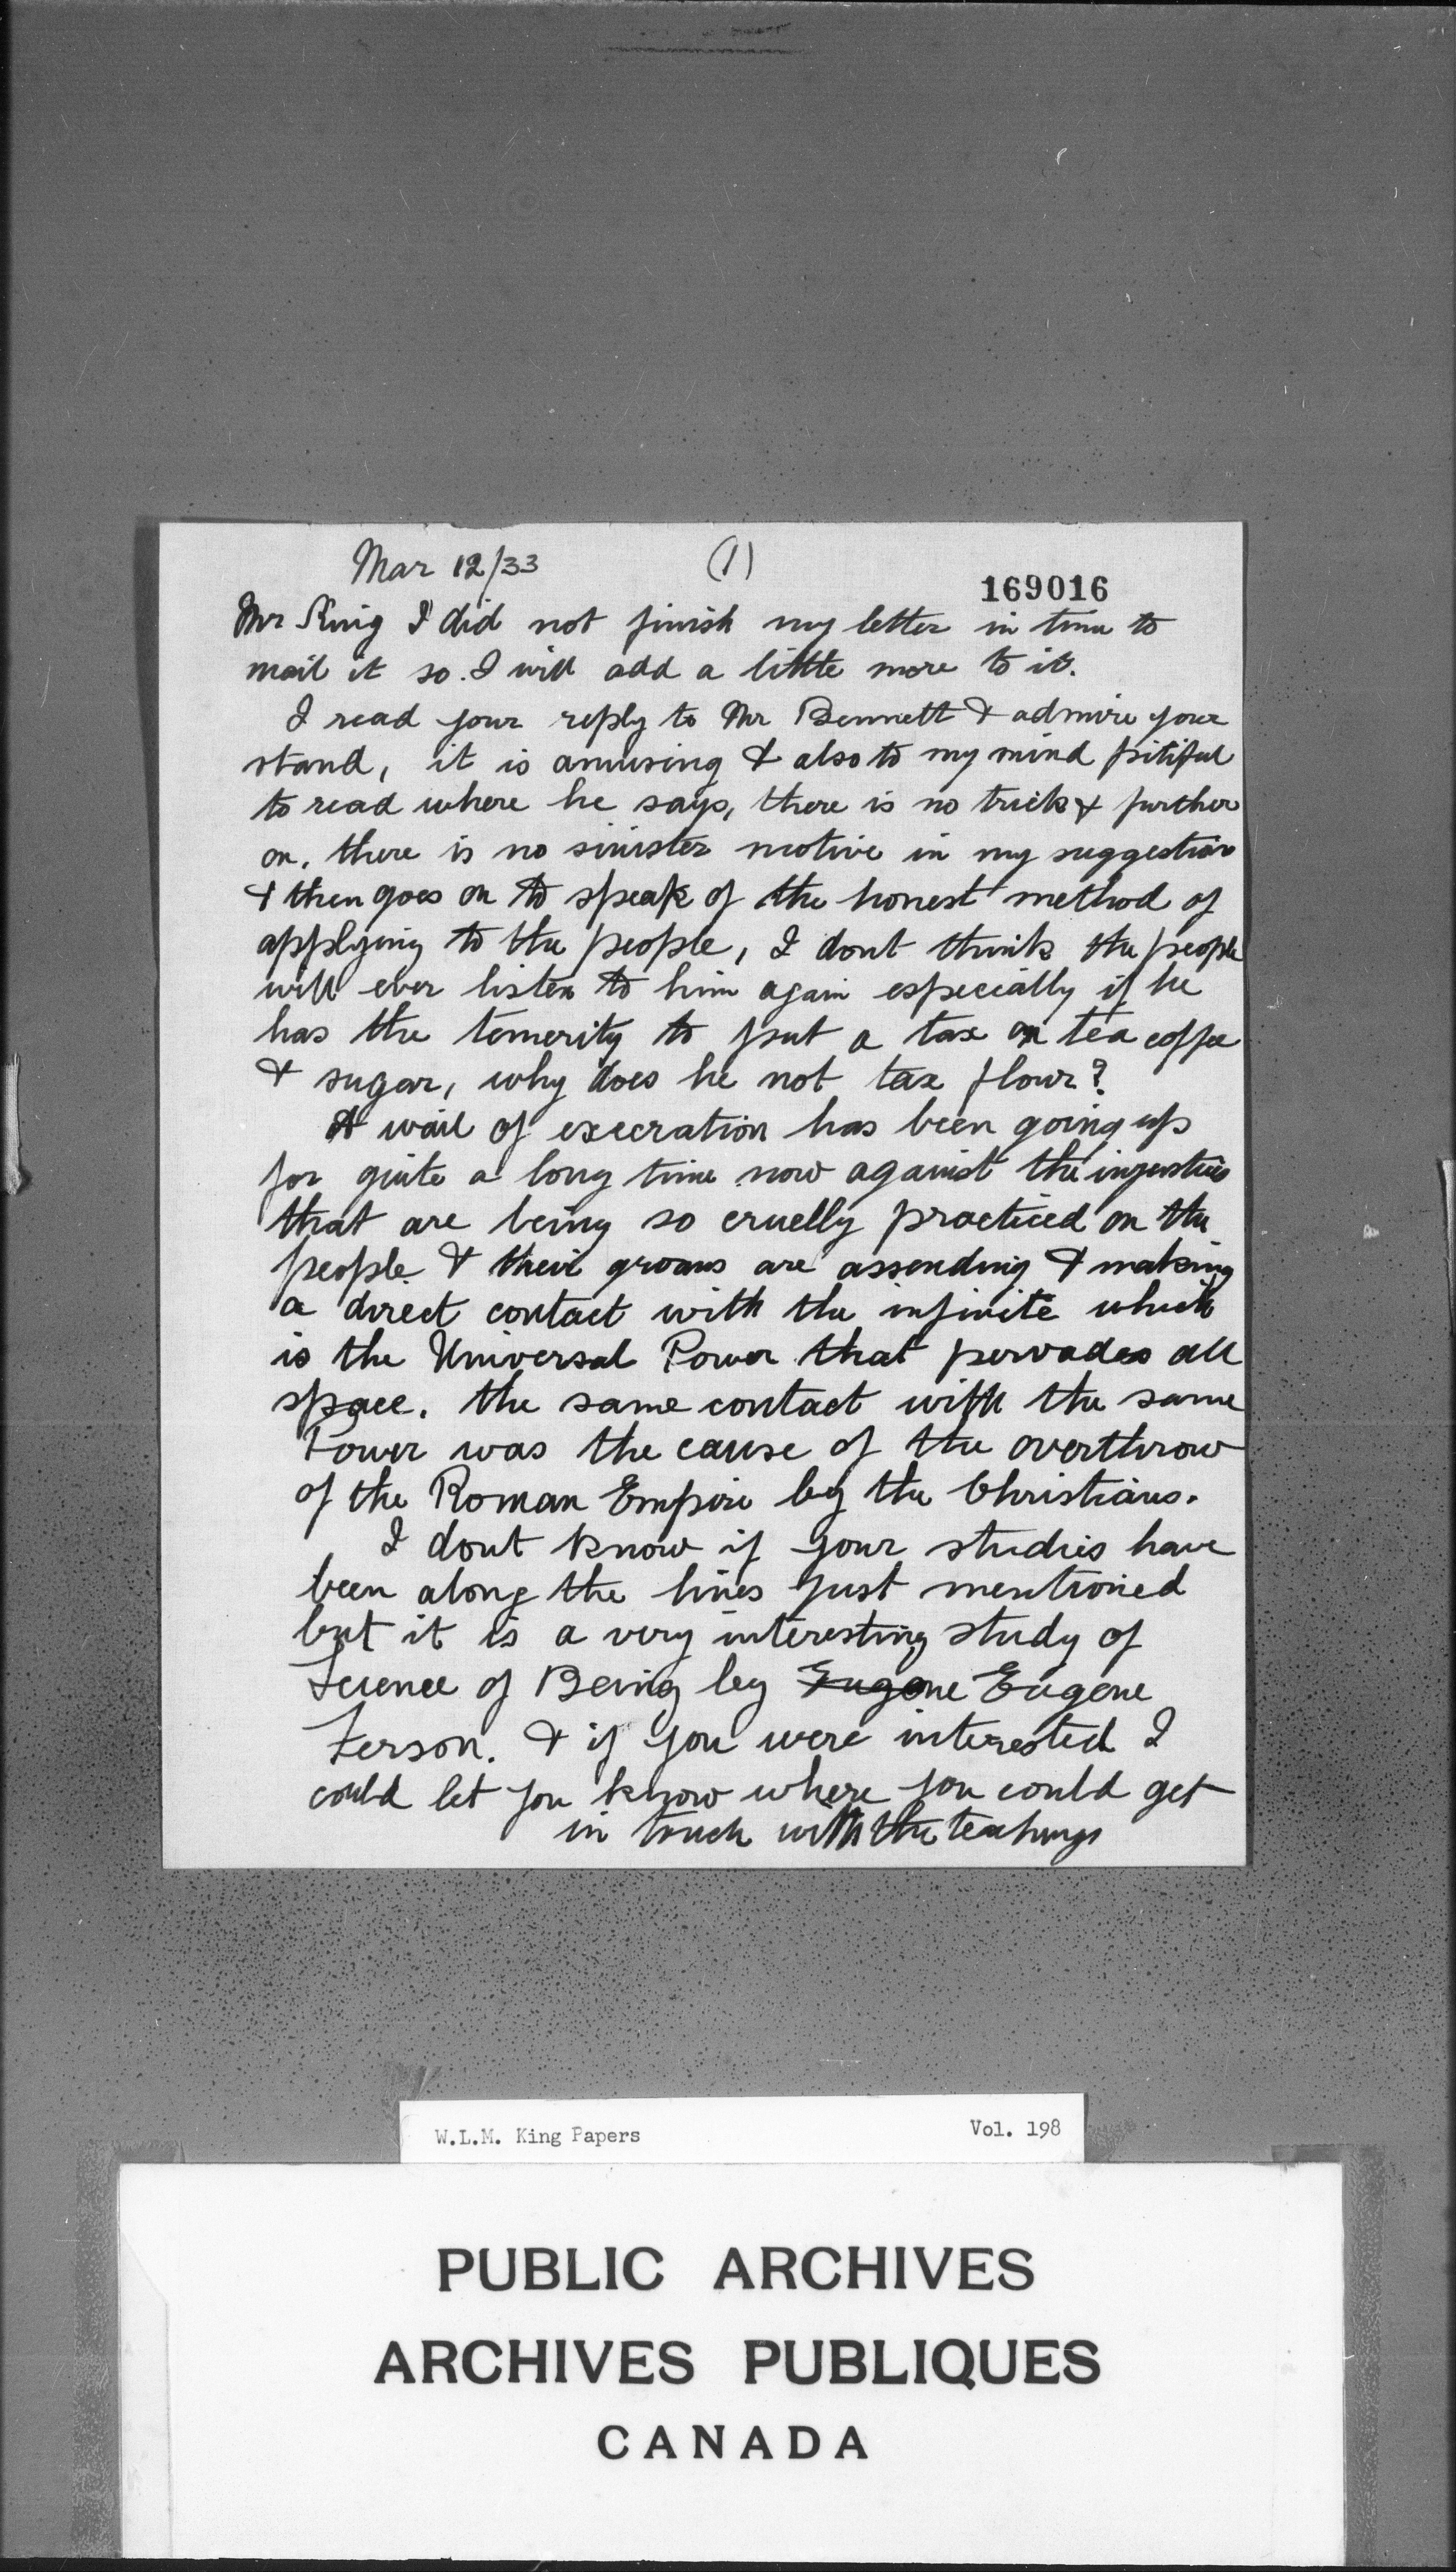 Mar 12/33 (1)
169016
Mr King I did not finish my letter in time to
mail it so. I will add a little more to it.
I read your reply to Mr Bennett & admire your
stand, it is amusing & also to my mind pitiful
to read where he says, there is no trick & further
on, there is no sinister motive in my suggestion
& then goes on to speak of the honest method of
applying to the people, I dont think the people
will ever listen to him again especially if he
has the temerity to put a tax on tea coffee
& sugar, why does he not tax flour?
A wail of execration has been going up
for quite a long time now against the injustices
that are being so cruelly practiced on the
people & their groans are assending & making
a direct contact with the infinite which
is the Universal Power that pervades all
space. the same contact with the same
Power was the cause of the overthrow
of the Roman Empire by the Christians.
I dont know if your studies have
been along the lines just mentioned
but it is a very interesting study of
Science of Being by Eugene Eugene
Ferson. & if you were interested I
could let you know where you could get
in touch with the teachings
W.L.M. King Papers Vol. 198
PUBLIC ARCHIVES
ARCHIVES PUBLIQUES
CANADA